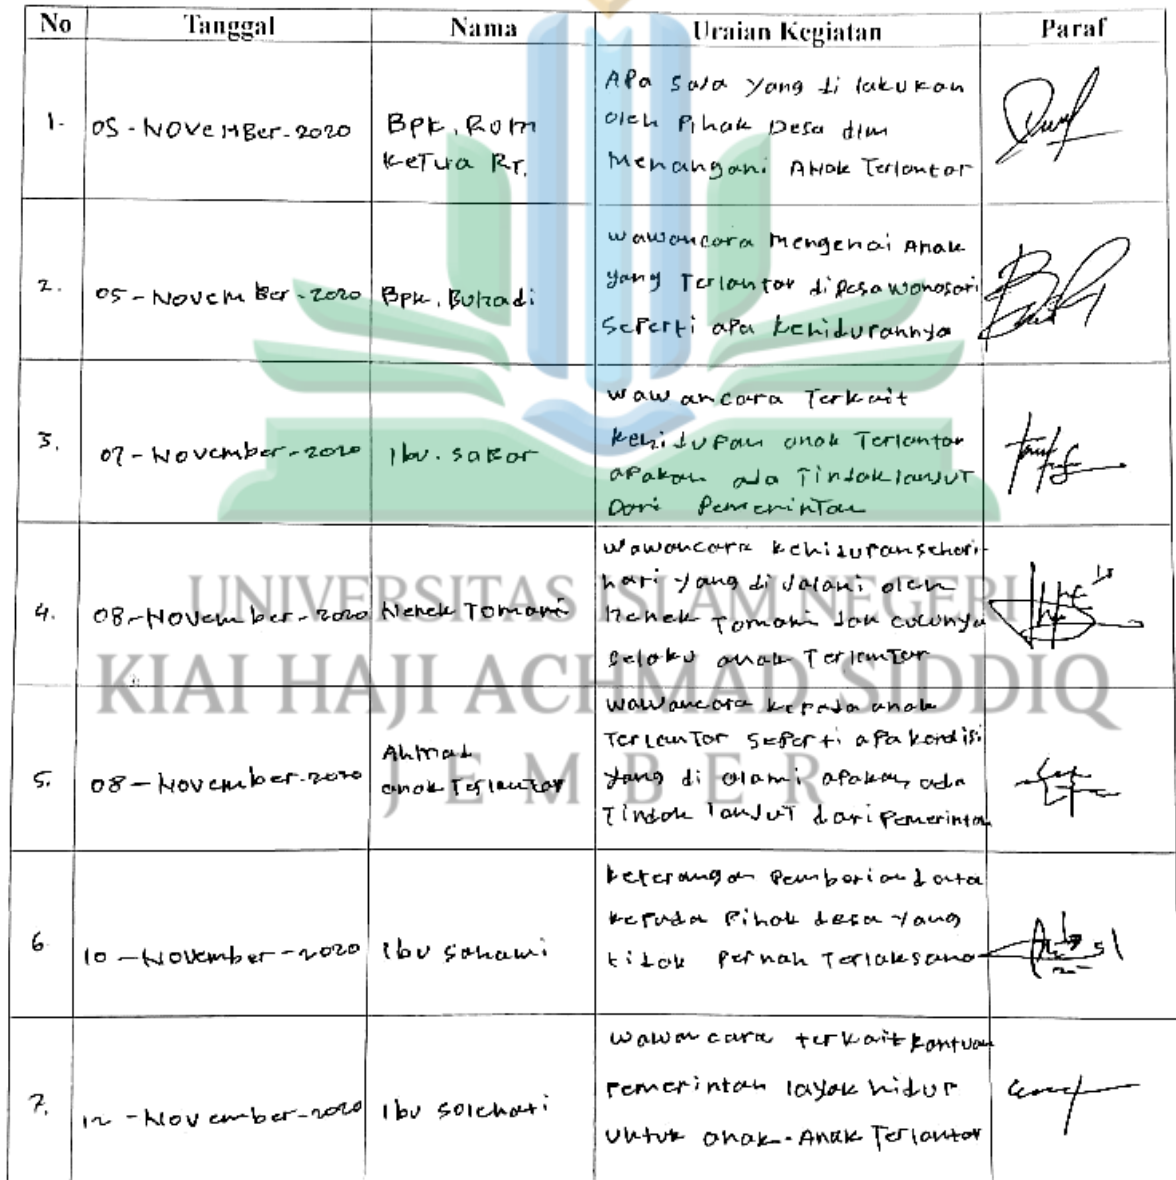 No Tanggal Nama Uraian Kegiatan Paraf
1. 05-November-2020 Bpk. Rom Ketua Rt. Apa saja yang di lakukan
oleh Pihak Desa dlm
Menangani Anak Terlantar
2. 05-November-2020 Bpk. Buhadi Wawancara Mengenai Anak
yang Terlantar di Desa Wonosari
seperti apa kehidupannya
3. 07-November-2020 Ibu. Sakar Wawancara Terkait
kehidupan anak Terlantar
apakah ada Tindak lanjut
Dari Pemerintah
4. 08-November-2020 Nenek Tomani Wawancara kehidupan sehari-
hari yang di Jalani oleh
Nenek Tomani dan cucunya
Selaku anak Terlantar
5. 08-November-2020 Ahmad anak Terlantar Wawancara kepada anak
Terlantar seperti apa kondisi
yang di alami apakah ada
Tindak lanjut dari Pemerintah
6. 10-November-2020 Ibu Sahawi keterangan Pemberian data
kepada Pihak desa yang
tidak pernah Terlaksana
7. 12-November-2020 Ibu Solehati Wawancara terkait bantuan
Pemerintah layak hidup
untuk anak-Anak Terlantar
UNIVERSITAS ISLAM NEGERI
KIAI HAJI ACHMAD SIDDIQ
JEMBER